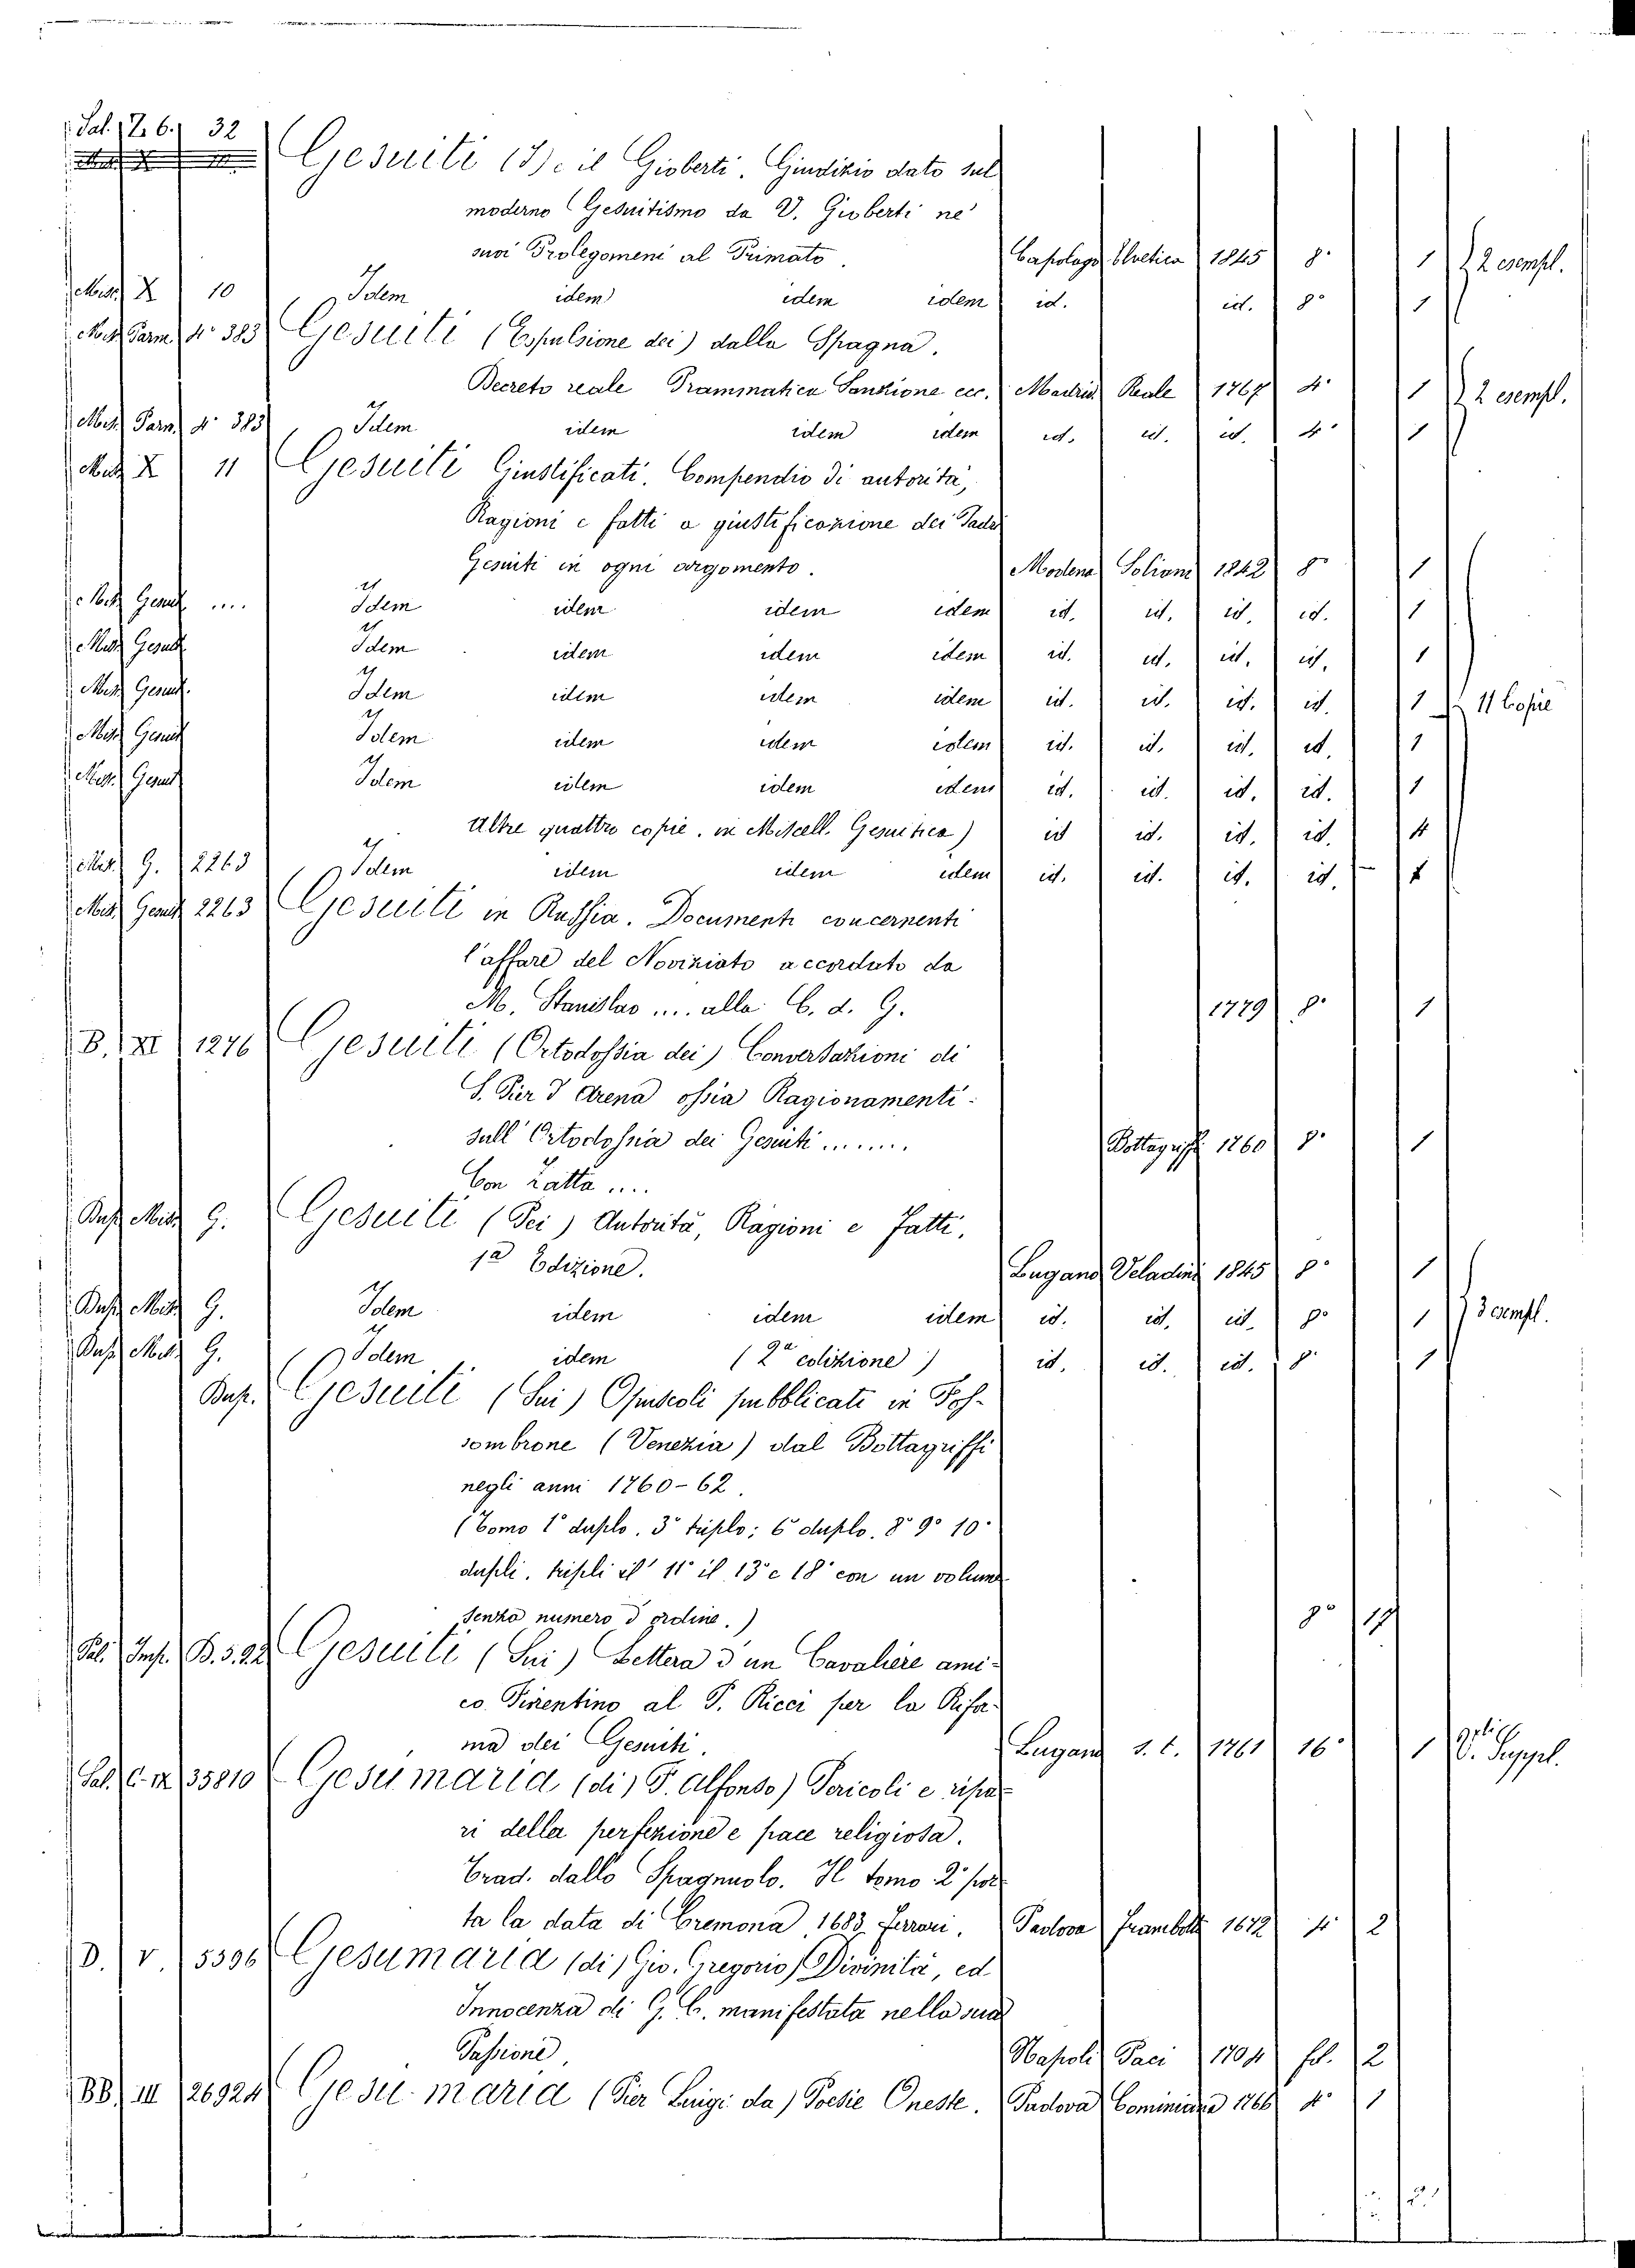 Sal. Z. 6. 32
Gesuiti (I) e il Gioberti. Giudizio dato sul
moderno Gesuitismo da V. Gioberti ne'
suoi Prolegomeni al Primato. Capolago Elvetica 1845 8° 1 2 esempl.
Misc. X 10 Idem idem idem idem id. id. 8° 1
Misc. Parm. 4° 383 Gesuiti (Espulsione dei) dalla Spagna.
Decreto reale Prammatica Sanzione ecc. Madrid Reale 1767 4° 1 2 esempl.
Misc. Parm. 4° 383 Idem idem idem idem id. id. id. 4° 1
Misc. X 11 Gesuiti Giustificati. Compendio di autorità,
Ragioni e fatti a giustificazione dei Padri
Gesuiti in ogni argomento. Modena Soliani 1842 8° 1
Misc. Gesuit. .... Idem idem idem idem id. id. id. id. 1
Misc. Gesuit. Idem idem idem idem id. id. id. id. 1
Misc. Gesuit. Idem idem idem idem id. id. id. id. 1 11 Copie
Misc. Gesuit. Idem idem idem idem id. id. id. id. 1
Misc. Gesuit. Idem idem idem idem id. id. id. id. 1
Altre quattro copie. in Miscell. Gesuitica) id id. id. id. 4
Misc. G. 2263 Idem idem idem idem id. id. id. id. 1
Misc. Gesuit. 2263 Gesuiti in Russia. Documenti concernenti
l'affare del Noviziato accordato da
M. Stanislao .... alla C. d. G. 1779 8° 1
B. XI 1276 Gesuiti (Ortodossia dei) Conversazioni di
S. Pier d'Arena ossia Ragionamenti
sull'Ortodossia dei Gesuiti .......
Bottagriffi 1760 8° 1
Con Zatta ....
Busta Misc. G. Gesuiti (Dei) Autorità, Ragioni e Fatti.
1a Edizione. Lugano Veladini 1845 8° 1
Busta Misc. G. Idem idem idem idem id. id. id. 8° 1 3 esempl.
Busta Misc. G. Idem idem (2a edizione) id. id. id. 8° 1
Gesuiti (Sui) Opuscoli pubblicati in Fos-
sombrone (Venezia) dal Bottagriffi
negli anni 1760-62.
(Tomo 1° duplo. 3° triplo; 6° duplo. 8° 9° 10°
dupli. tripli il 11° il 13° e 18° con un volume
senza numero d'ordine.) 8° 19
Sal. Imp. B. 5. 92 Gesuiti (Sui) Lettera d'un Cavaliere ami-
co Fiorentino al P. Ricci per la Rifor-
ma dei Gesuiti. Lugano s. t. 1761 16° 1 V. Suppl.
Sal. C. IX 35810 Gesumaria (di) P. Alfonso) Pericoli e ripa-
ri della perfezione e pace religiosa.
Trad. dallo Spagnuolo. Il tomo 2° por-
ta la data di Cremona 1683 Ferrari. Padova Frambotti 1672 4° 2
D. V. 5396 Gesumaria (di) Gio. Gregorio) Divinità, ed
Innocenza di G. C. manifestata nella sua
Passione, Napoli Paci 1704 fol. 2
BB. III 26924 Gesù-maria (Pier Luigi da) Poesie Oneste. Padova Cominiana 1766 4° 1